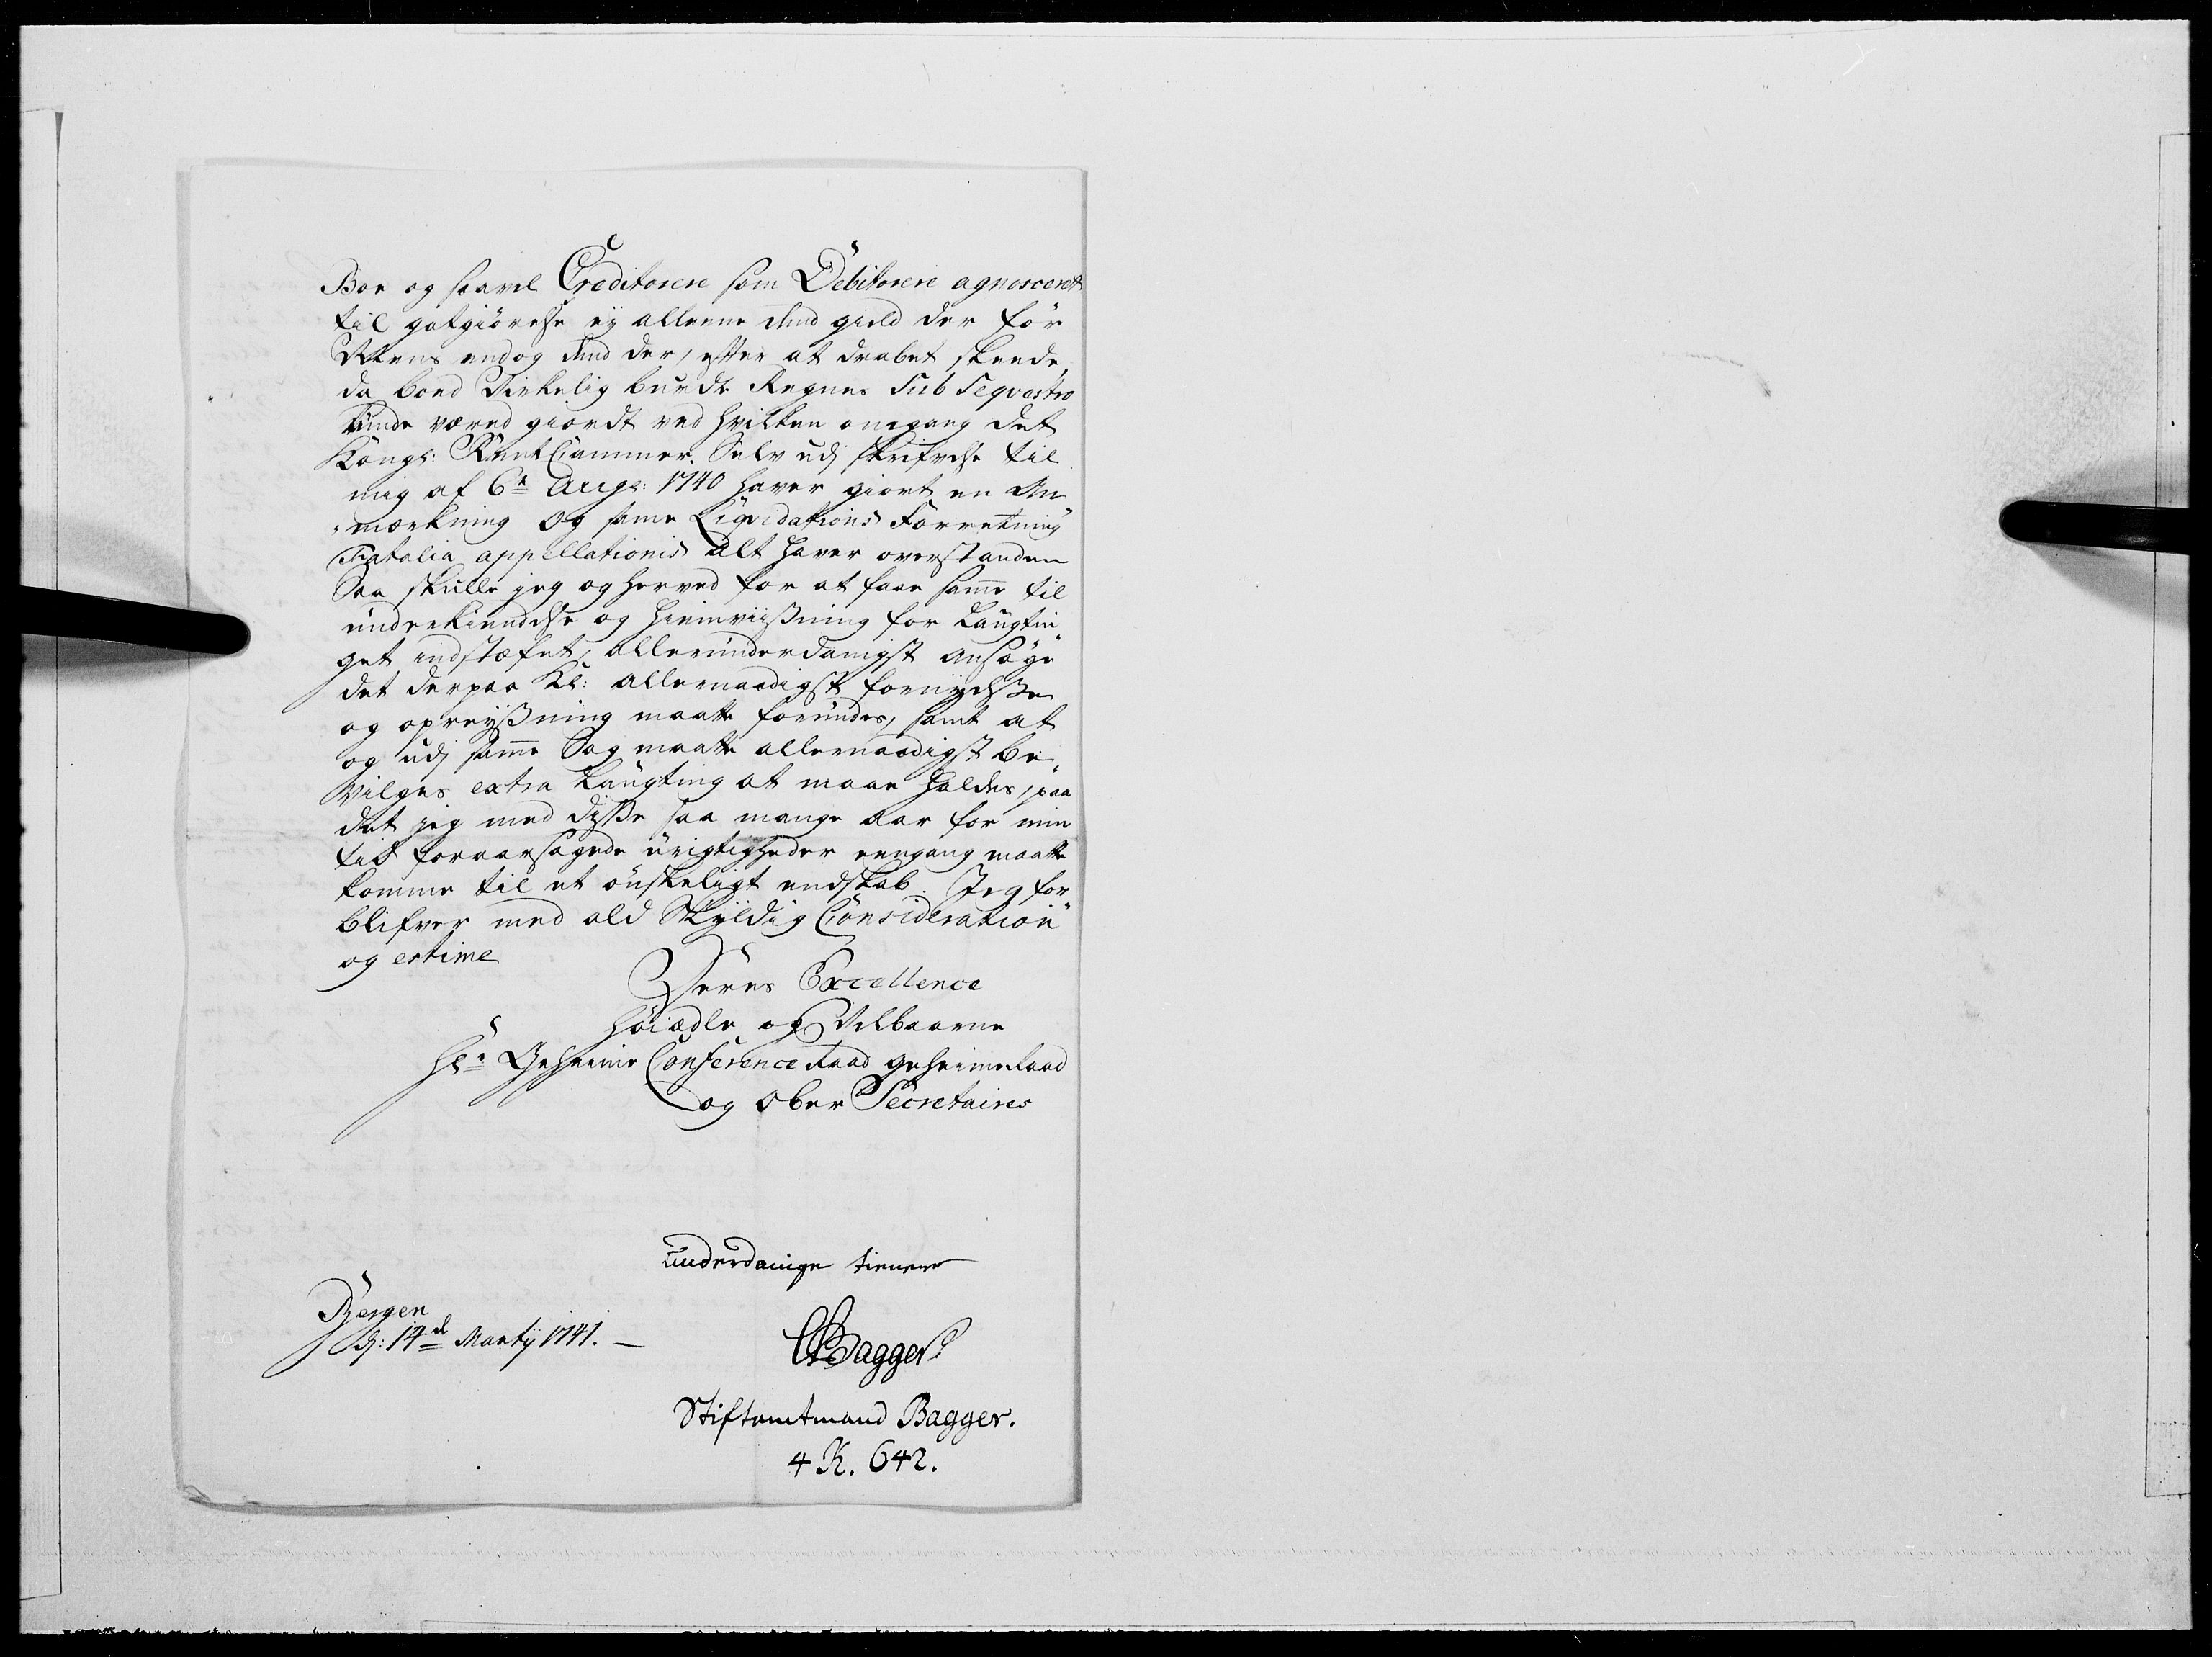 Boe og saavel Creditorere som Debitorere agnosceret
til gotgiørelse ey alleene dend gield der før
Men endog dend der, efter at drabet skeede,
da boed Virkelig burdte Regnes Sub Seqvestro
kunde væred giordt ved hvilken omgang det
Kongl: RentCammer Selv udj skrifvelse til
mig af 6te Aug: 1740 haver giort en An
mærkning og same Liqvidations Forretning
Fatalia appellationis alt haver overstanden
Saa skulle jeg og herved for at faae samme til
underkiendelse og hiemviisning for Laugtin
get indstefnet, allerunderdanigst ansøge
det derpaa Kl: allernaadigst fornyelse
og opreysning maatte forundes, samt at
og udj samme Sag maatte allernaadigst be
vilges extra Laugting at maae holdes, paa
det jeg med disse saa mange aar for min
tid foraarsagede urigtigheder eengang maatte
komme til et ønskeligt endskab. Jeg for
blifver med ald Skyldig Consideration
og estime
Deres Excellence
Høiædle og Velbaarne
Hr Geheime Conference Raad geheimeraad
og Ober Secretaires
underdanige tienere
Bergen
d: 14de Martij 1741.
Bagger
Stiftamtmand Bagger.
4 K. 642.